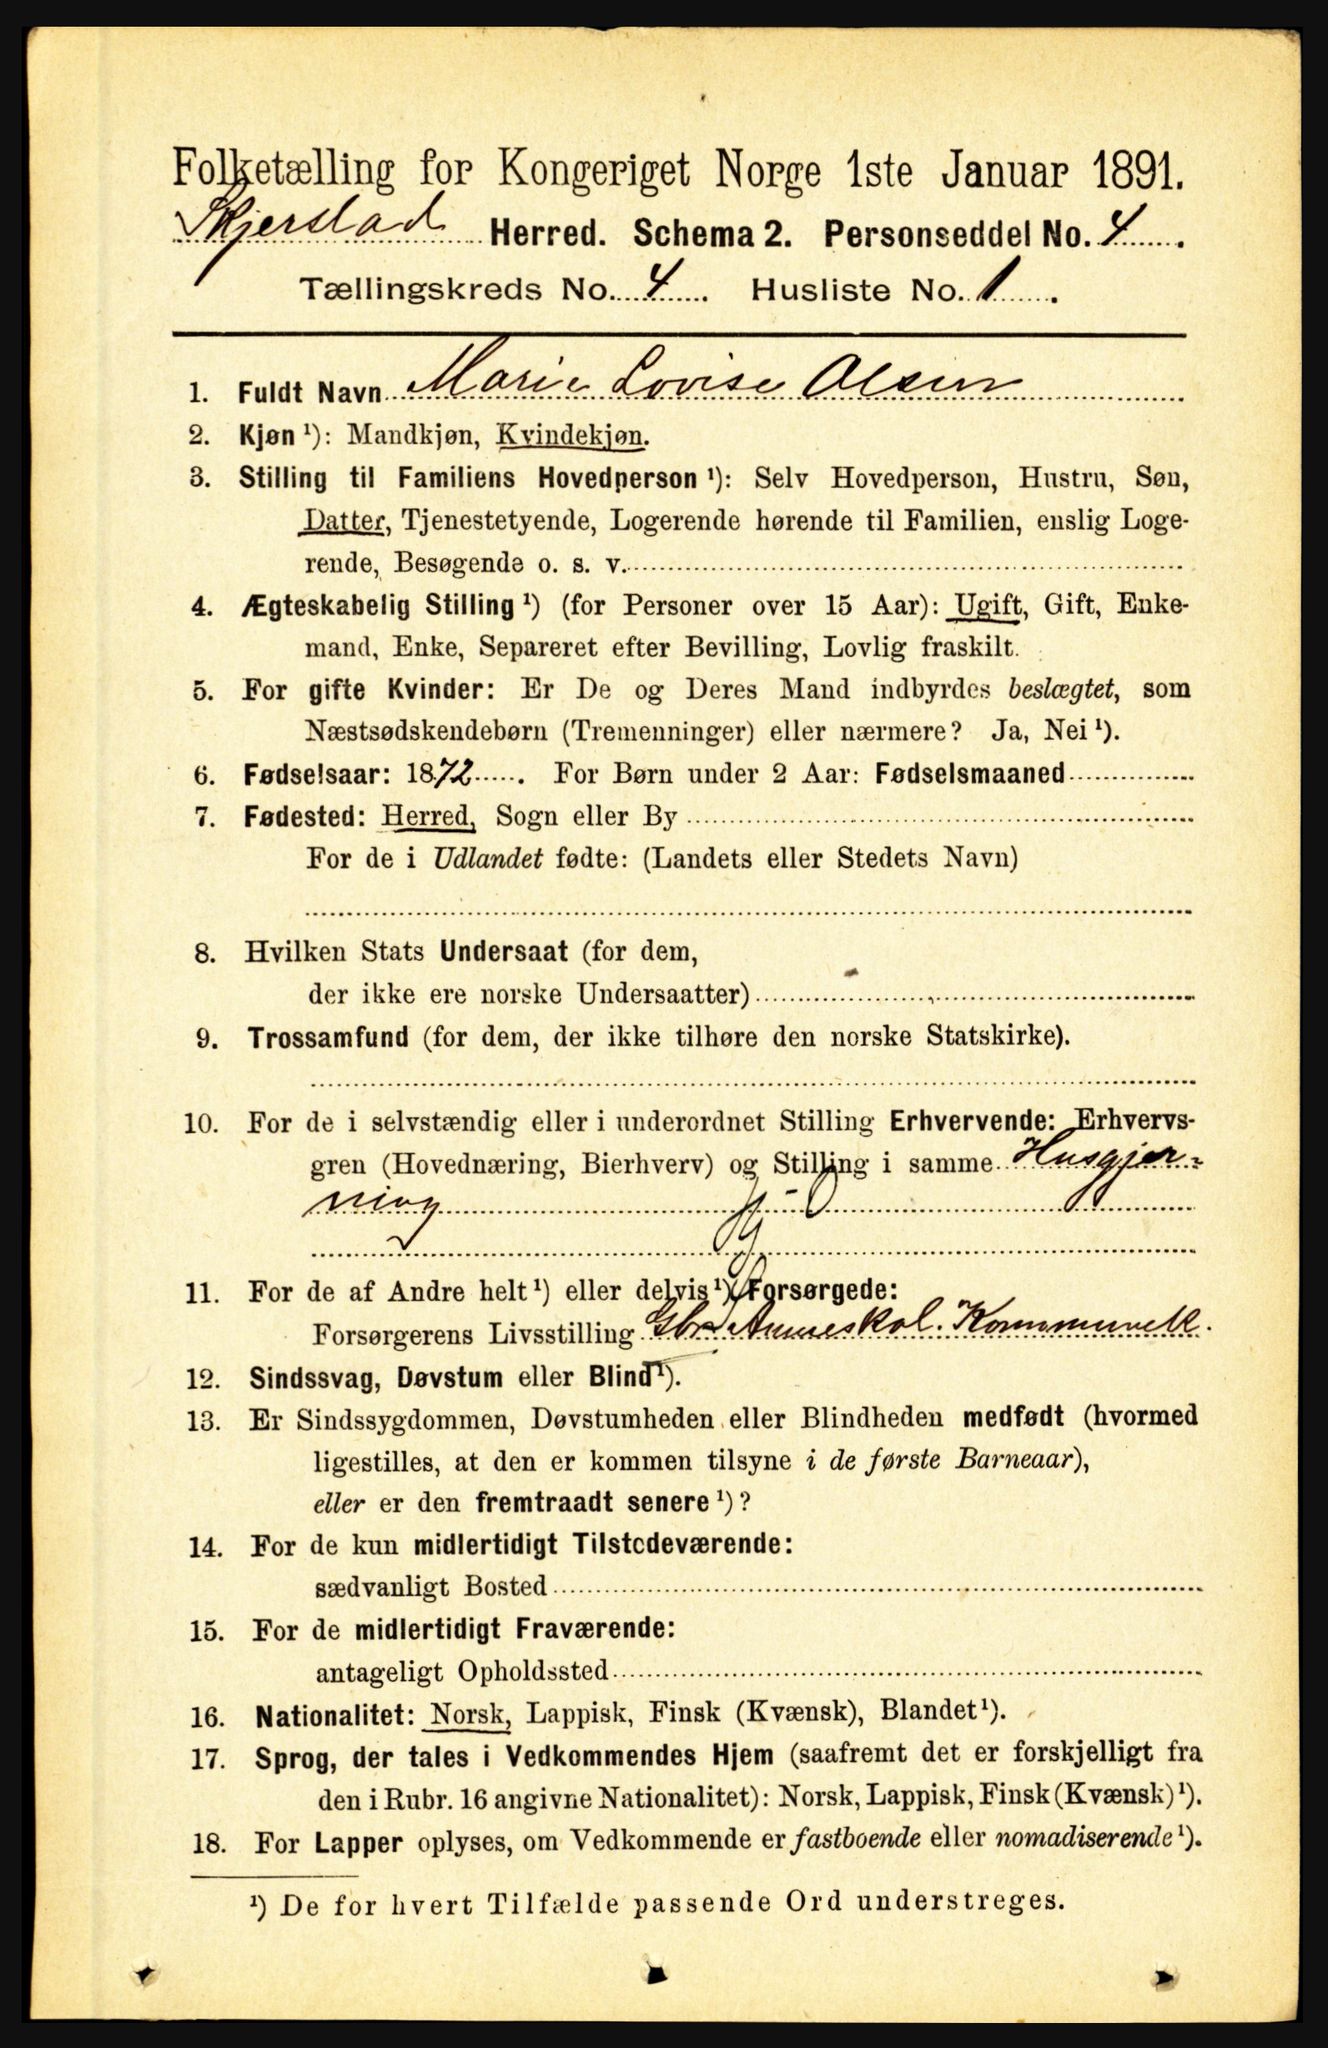 Folketælling for Kongeriget Norge 1ste Januar 1891.
Skjerstad Herred. Schema 2. Personseddel No. 4.
Tællingskreds No. 4. Husliste No. 1.
1. Fuldt Navn Marie Lovise Olsen
2. Kjøn ¹): Mandkjøn, Kvindekjøn.
3. Stilling til Familiens Hovedperson ¹): Selv Hovedperson, Hustru, Søn,
Datter, Tjenestetyende, Logerende hørende til Familien, enslig Loge-
rende, Besøgende o. s. v.
4. Ægteskabelig Stilling ¹) (for Personer over 15 Aar): Ugift, Gift, Enke-
mand, Enke, Separeret efter Bevilling, Lovlig fraskilt.
5. For gifte Kvinder: Er De og Deres Mand indbyrdes beslægtet, som
Næstsødskendebørn (Tremenninger) eller nærmere? Ja, Nei ¹).
6. Fødselsaar: 1872. For Børn under 2 Aar: Fødselsmaaned
7. Fødested: Herred, Sogn eller By
For de i Udlandet fødte: (Landets eller Stedets Navn)
8. Hvilken Stats Undersaat (for dem,
der ikke ere norske Undersaatter)
9. Trossamfund (for dem, der ikke tilhøre den norske Statskirke).
10. For de i selvstændig eller i underordnet Stilling Erhvervende: Erhvervs-
gren (Hovednæring, Bierhverv) og Stilling i samme Husgjer-
ning
11. For de af Andre helt ¹) eller delvis ¹) Forsørgede:
Forsørgerens Livsstilling
12. Sindssvag, Døvstum eller Blind ¹).
13. Er Sindssygdommen, Døvstumheden eller Blindheden medfødt (hvormed
ligestilles, at den er kommen tilsyne i de første Barneaar),
eller er den fremtraadt senere ¹)?
14. For de kun midlertidigt Tilstedeværende:
sædvanligt Bosted
15. For de midlertidigt Fraværende:
antageligt Opholdssted
16. Nationalitet: Norsk, Lappisk, Finsk (Kvænsk), Blandet ¹).
17. Sprog, der tales i Vedkommendes Hjem (saafremt det er forskjelligt fra
den i Rubr. 16 angivne Nationalitet): Norsk, Lappisk, Finsk (Kvænsk) ¹).
18. For Lapper oplyses, om Vedkommende er fastboende eller nomadiserende ¹).
¹) De for hvert Tilfælde passende Ord understreges.